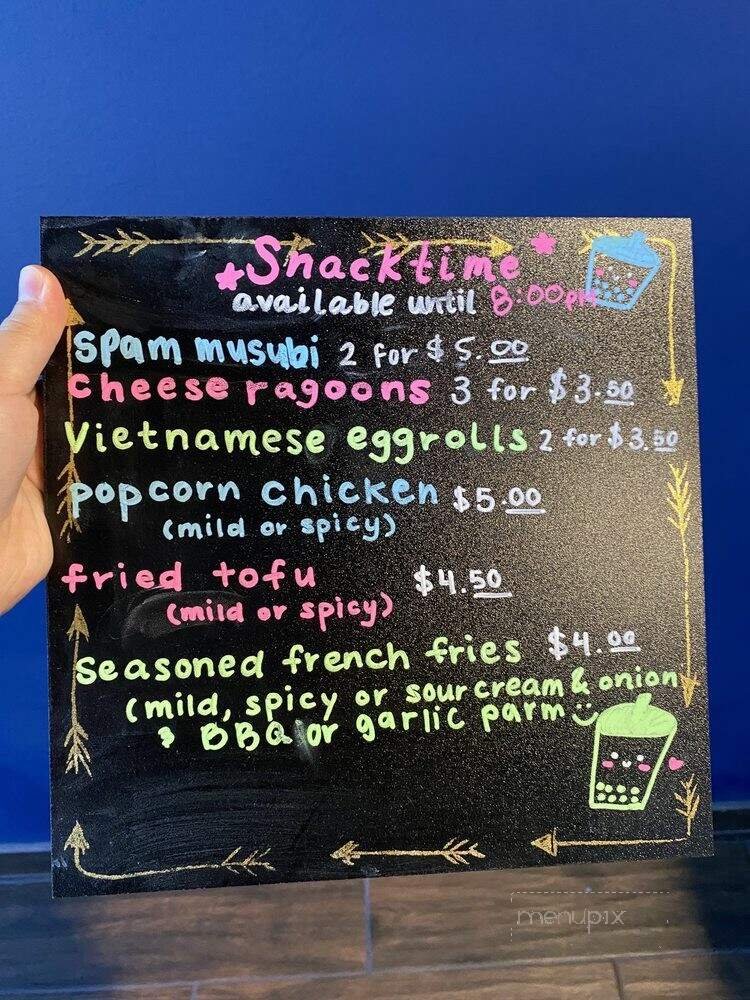 Snacktime
available until 8:00pm
spam musubi 2 for $5.00
cheese ragoons 3 for $3.50
Vietnamese eggrolls 2 for $3.50
popcorn chicken $5.00
(mild or spicy)
fried tofu $4.50
(mild or spicy)
seasoned french fries $4.00
(mild, spicy or sour cream & onion
BBQ or garlic parm
menupix